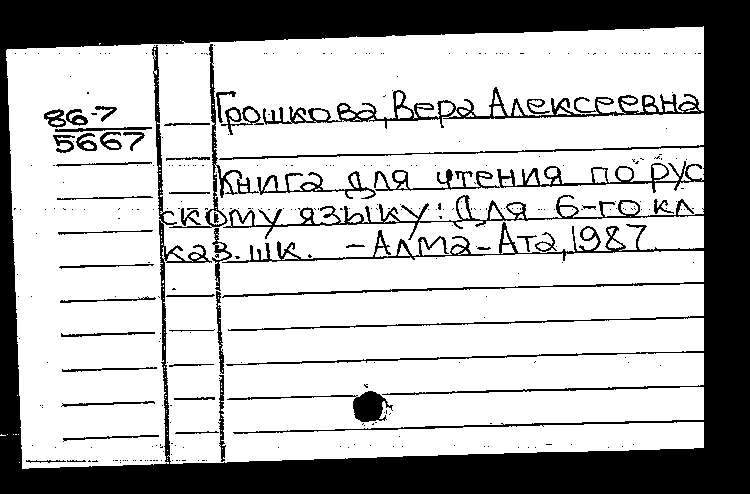 86-7
5667
Грошкова, Вера Алексеевна
Книга для чтения по рус
скому языку: Для 6-го кл.
каз. шк. - Алма-Ата, 1987